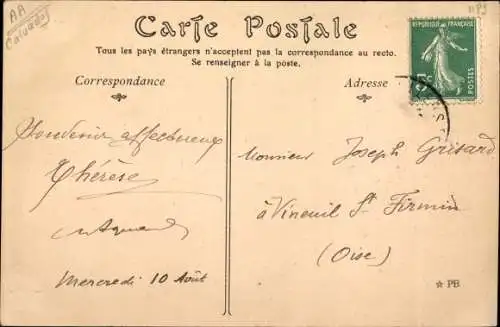 AA
Calvados
Carte Postale
Tous les pays étrangers n'acceptent pas la correspondance au recto.
Se renseigner à la poste.
RÉPUBLIQUE FRANÇAISE
5c
POSTES
Correspondance
Adresse
Souvenir affectueux
Thérèse
Mercredi 10 Août
Monsieur Joseph Grisard
à Vineuil St Firmin
(Oise)
☆ PB